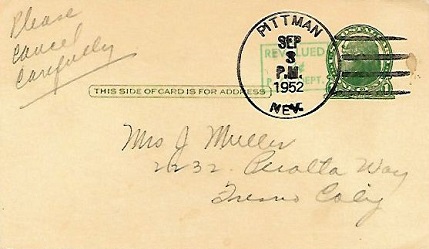 Please
cancel
carefully
PITTMAN
SEP
3
P.M.
1952
NEV.
REVALUED
P. DEPT.
THIS SIDE OF CARD IS FOR ADDRESS
Mrs J Muller
2232 Peralta Way
Fresno Calif